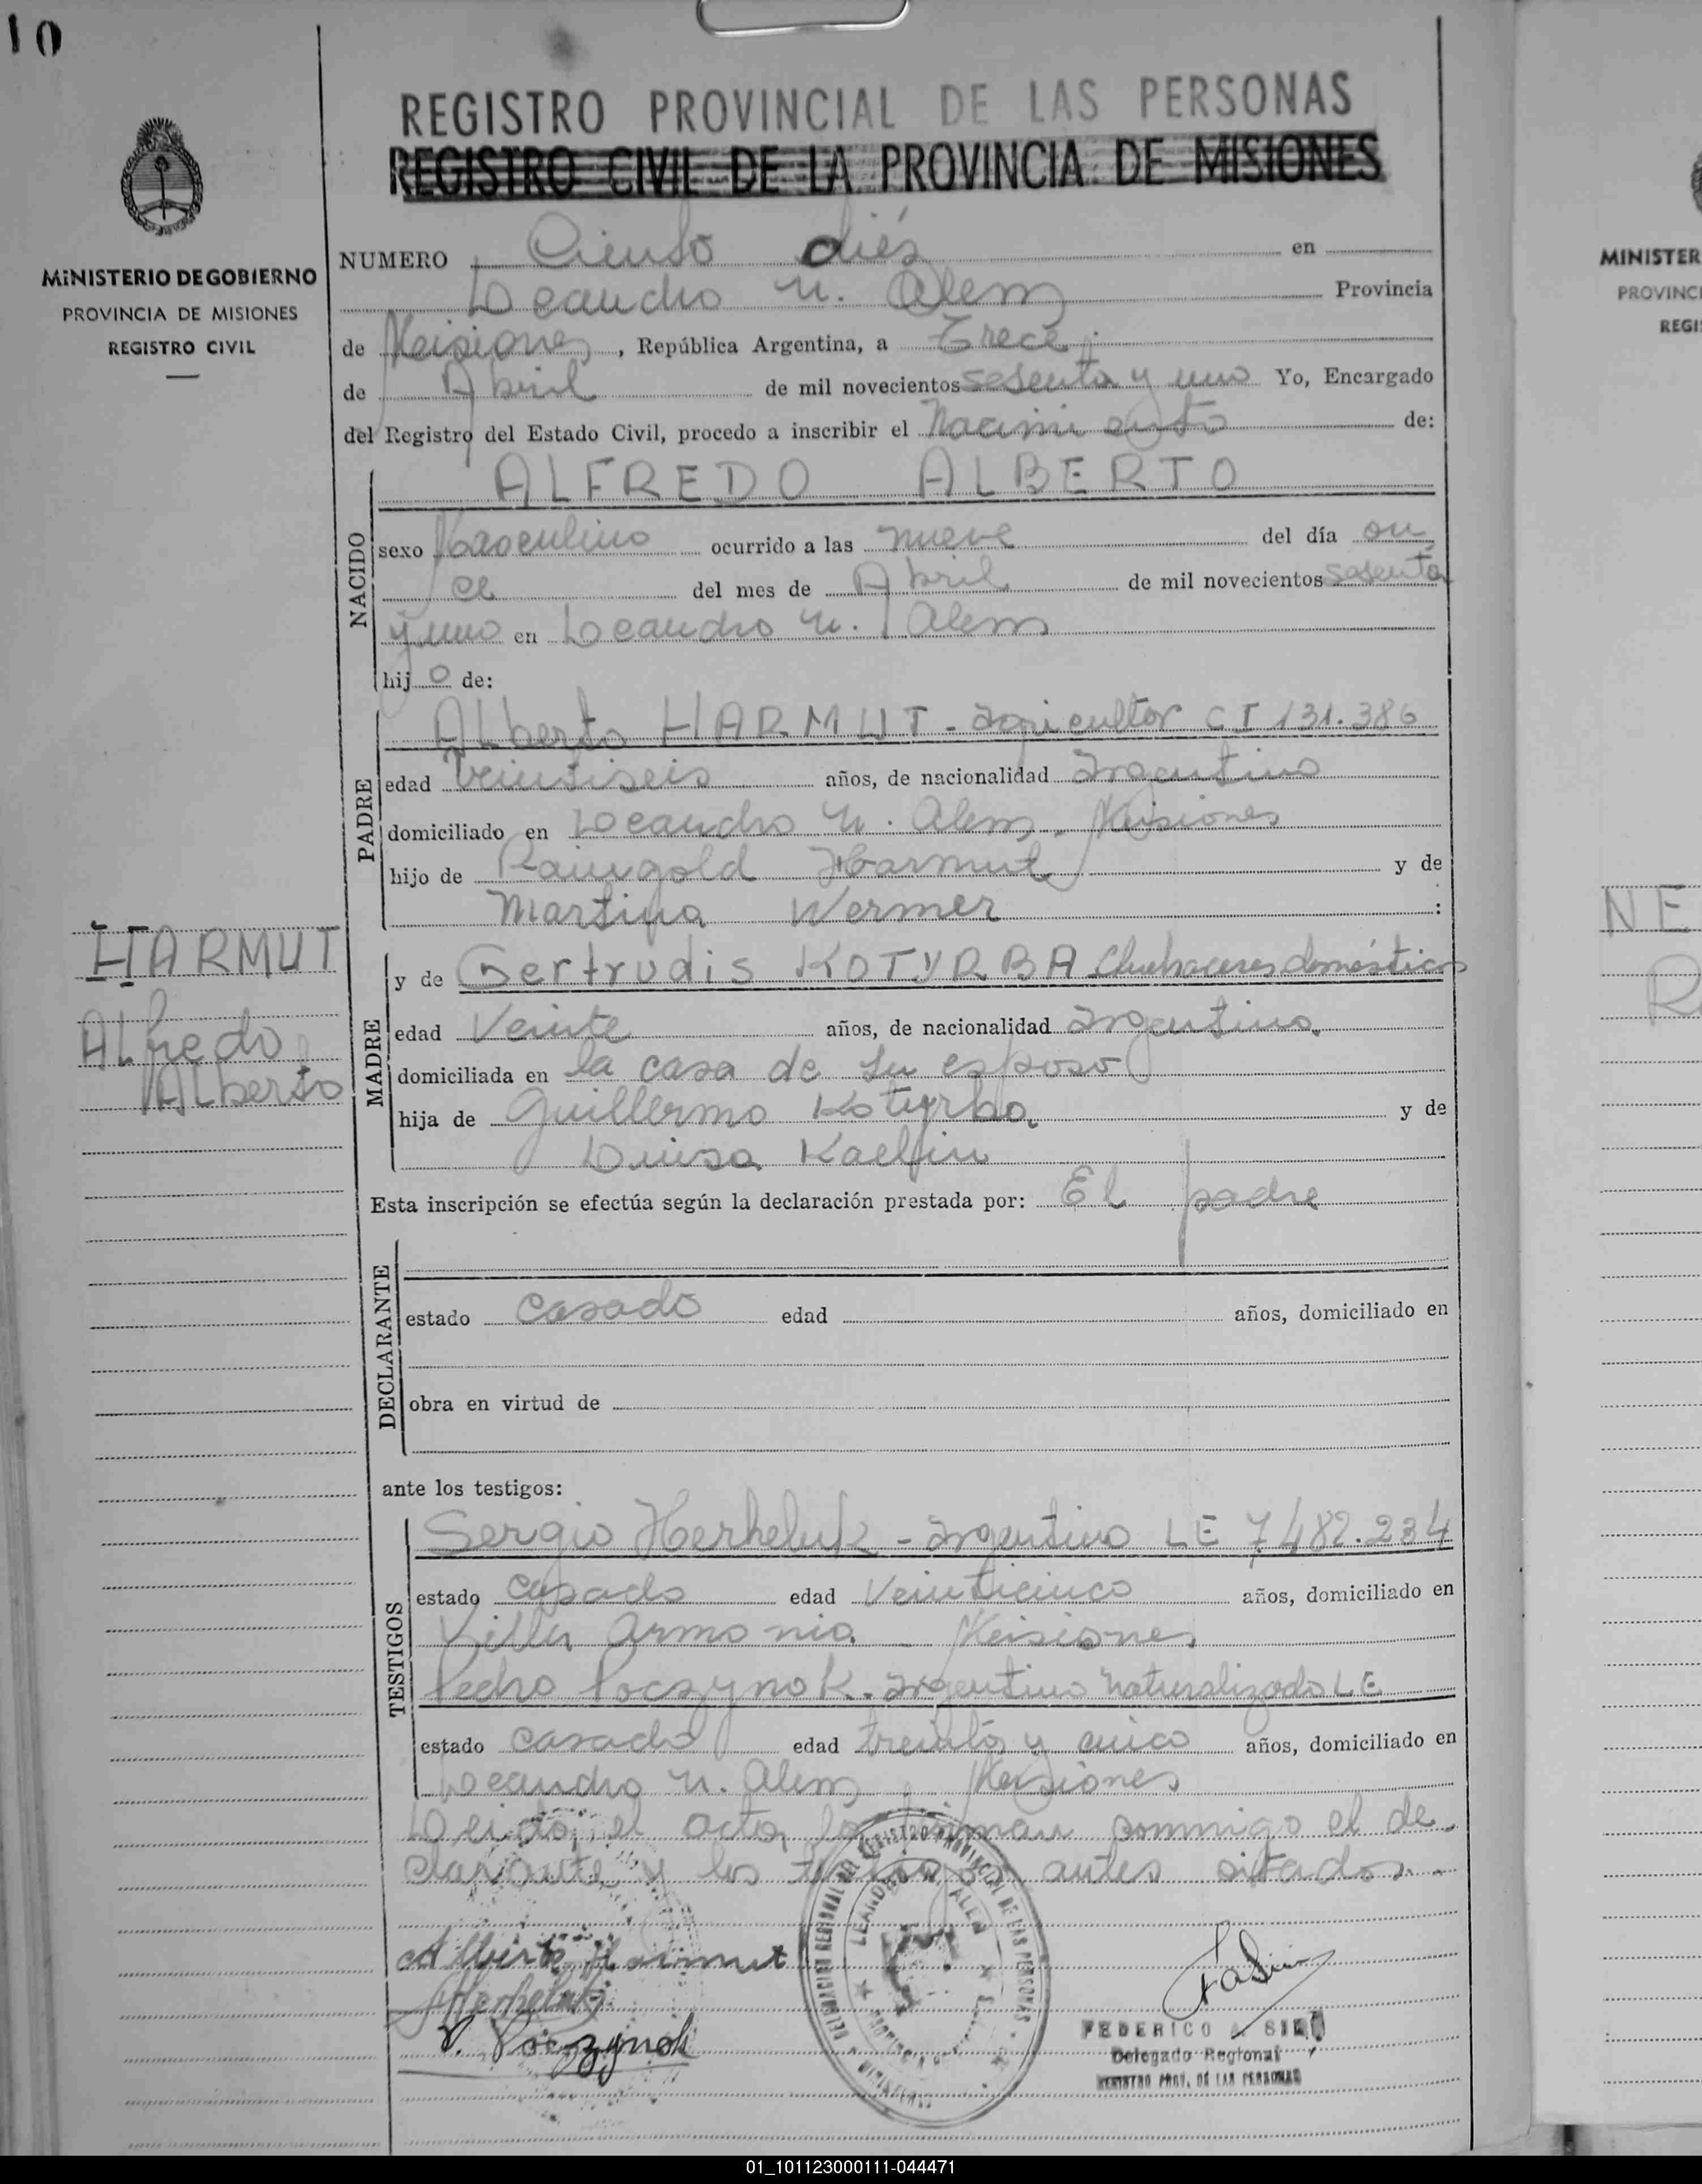 10
REGISTRO PROVINCIAL DE LAS PERSONAS
REGISTRO CIVIL DE LA PROVINCIA DE MISIONES
MINISTERIO DE GOBIERNO
PROVINCIA DE MISIONES
REGISTRO CIVIL
NUMERO Ciento diés en
Leandro N. Alem Provincia
de Misiones, República Argentina, a Trece
de Abril de mil novecientos sesenta y uno Yo, Encargado
del Registro del Estado Civil, procedo a inscribir el Nacimiento de:
ALFREDO ALBERTO
NACIDO
sexo Masculino ocurrido a las nueve del día on
ce del mes de Abril de mil novecientos sesenta
y uno en Leandro N. Alem
hijo de:
PADRE
Alberto HARMUT - agricultor CI 131.386
edad Veintiseis años, de nacionalidad argentino
domiciliado en Leandro N. Alem - Misiones
hijo de Raingold Harmut y de
Martina Wermer :
HARMUT
Alfredo
Alberto
MADRE
y de Gertrudis KOTYRBA Quehaceres domésticos
edad Veinte años, de nacionalidad argentina
domiciliada en la casa de su esposo
hija de Guillermo Kotyrba y de
Luisa Kaelfin
Esta inscripción se efectúa según la declaración prestada por: El padre
DECLARANTE
estado casado edad años, domiciliado en
obra en virtud de
ante los testigos:
TESTIGOS
Sergio Herheluk - argentino LE 7.482.234
estado casado edad Veinticinco años, domiciliado en
Villa Armonia - Misiones
Pedro Poczynok - argentino naturalizado LE
estado casado edad treinta y cinco años, domiciliado en
Leandro N. Alem Misiones
Leido el acta, la firman conmigo el de
clarante y los testigos antes citados.-
Alberto Harmut
Herheluk
P. Poczynok
DELEGACION REGIONAL DEL REGISTRO PROVINCIAL DE LAS PERSONAS
LEANDRO N. ALEM
FEDERICO A.
Delegado Regional
REGISTRO PROV. DE LAS PERSONAS
MINISTER
PROVINCI
REGI
NE
R
01_101123000111-044471